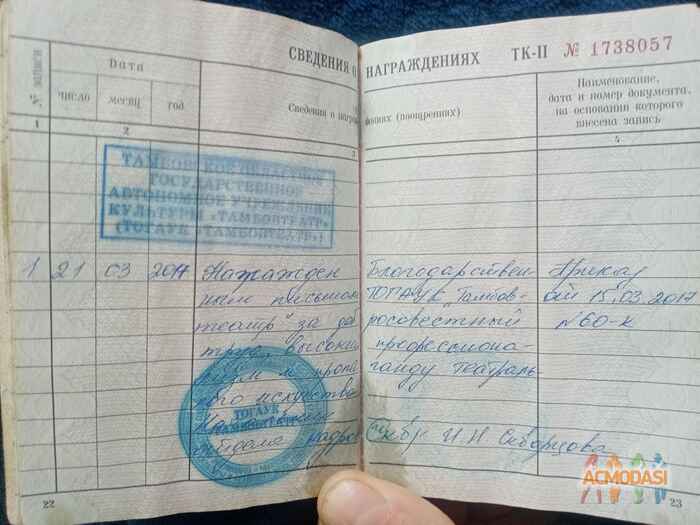 СВЕДЕНИЯ О НАГРАЖДЕНИЯХ ТК-II № 1738057
№ записи
Дата
число месяц год
Сведения о награждениях (поощрениях)
Наименование,
дата и номер документа,
на основании которого
внесена запись
1 2 3 4
ТАМБОВСКОЕ ОБЛАСТНОЕ
ГОСУДАРСТВЕННОЕ
АВТОНОМНОЕ УЧРЕЖДЕНИЕ
КУЛЬТУРЫ «ТАМБОВТЕАТР»
(ТОГАУК «ТАМБОВТЕАТР»)
1 21 03 2017 Награжден Благодарствен- Приказ
ным письмом ТОГАУК "Тамбов- от 15.03.2017
театр" за доб росовестный №60-к
труд, высокий профессиона-
лизм и пропа ганду театраль
ного искусства
отдела кадров И.Н. Скворцова
ТОГАУК
ТАМБОВТЕАТР
22
23
ACMODASI